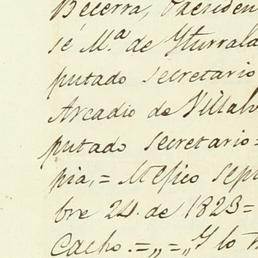 Becerra, Presiden
sé M.ª de Yturrala
putado secretario
Arcadio de Villalv
putado secretario=
pia,= Mejico sept
bre 24. de 1823=
Cacho.=„=„Y lo tr